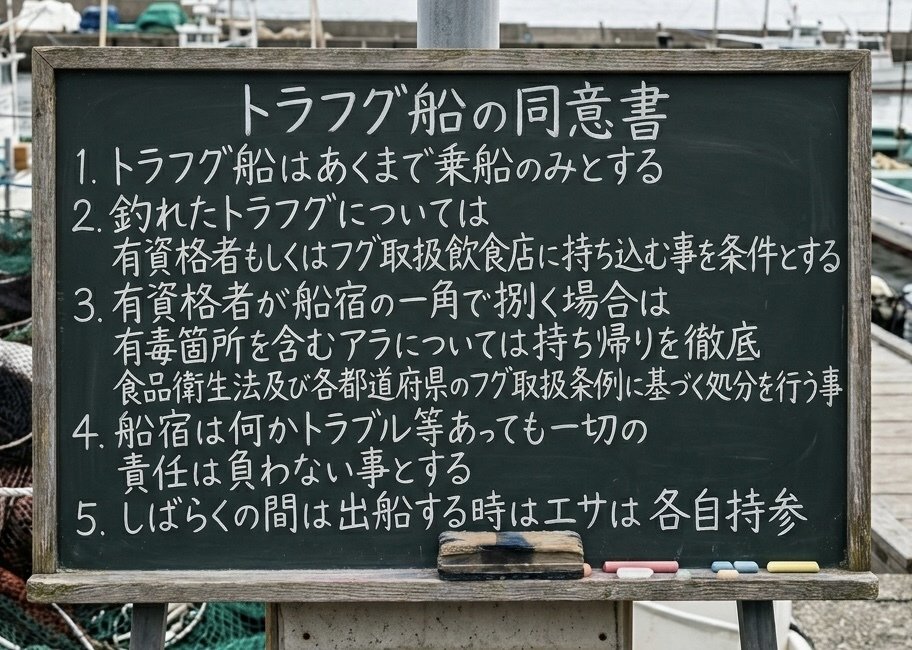 トラフグ船の同意書
1. トラフグ船はあくまで乗船のみとする
2. 釣れたトラフグについては
有資格者もしくはフグ取扱飲食店に持ち込む事を条件とする
3. 有資格者が船宿の一角で捌く場合は
有毒箇所を含むアラについては持ち帰りを徹底
食品衛生法及び各都道府県のフグ取扱条例に基づく処分を行う事
4. 船宿は何かトラブル等あっても一切の
責任は負わない事とする
5. しばらくの間は出船する時はエサは各自持参